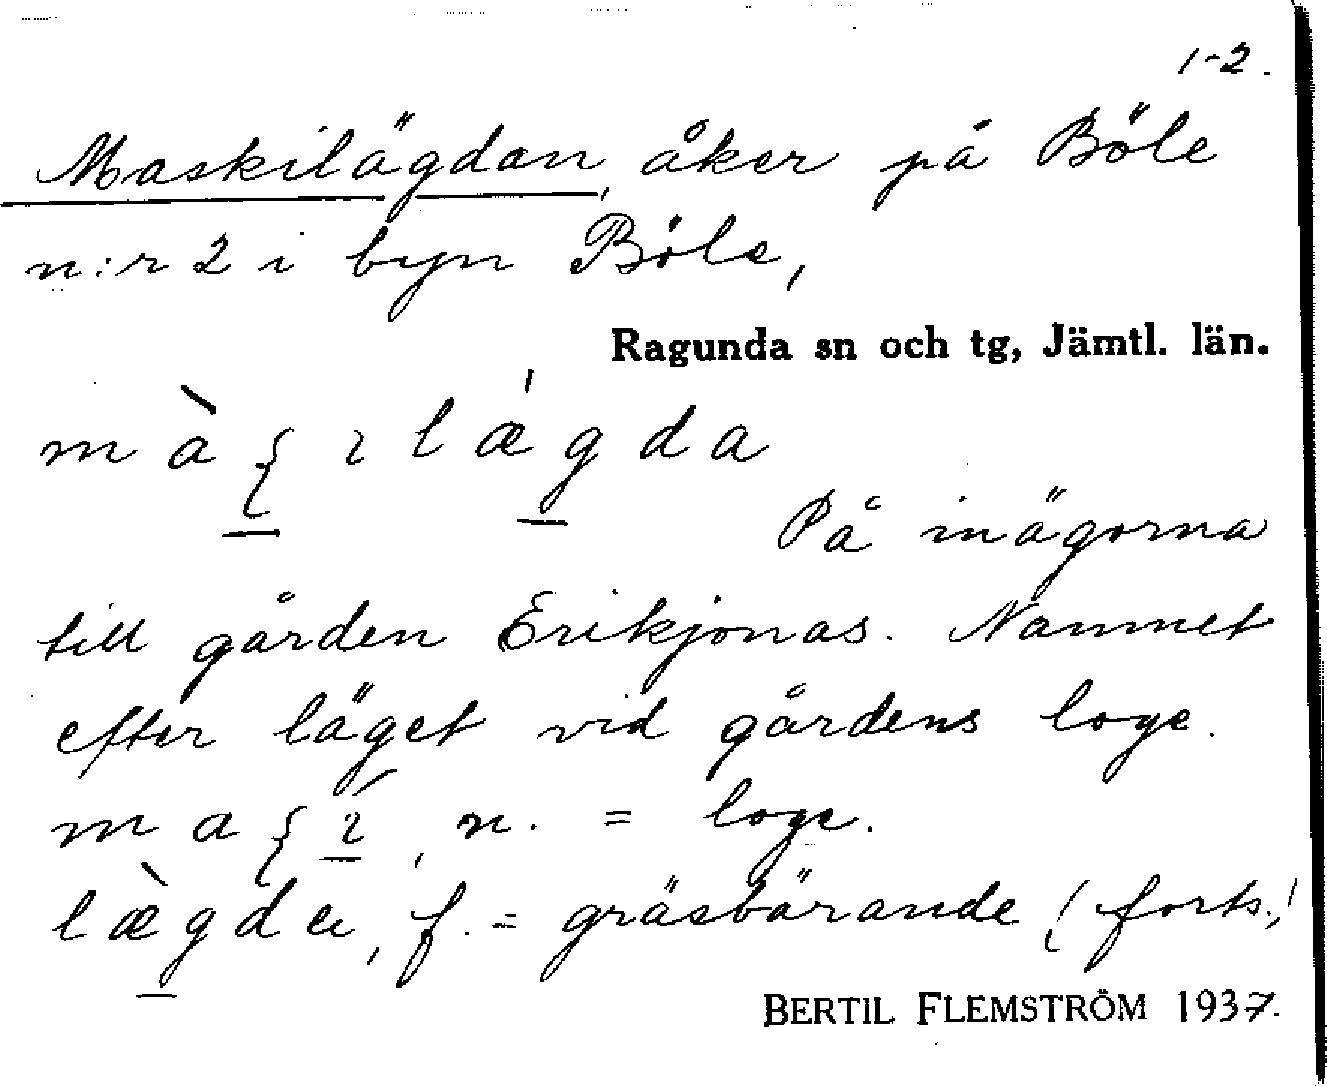 1-2.
Maskilägdan, åker på Böle
n:r 2 i byn Böle,
Ragunda sn och tg, Jämtl. län.
màʃɩlǽgda
På inägorna
till gården Erikjonas. Namnet
efter läget vid gårdens loge.
maʃɩ́, n. = loge.
læ̀gda, f. = gräsbärande (forts.)
BERTIL FLEMSTRÖM 1937.